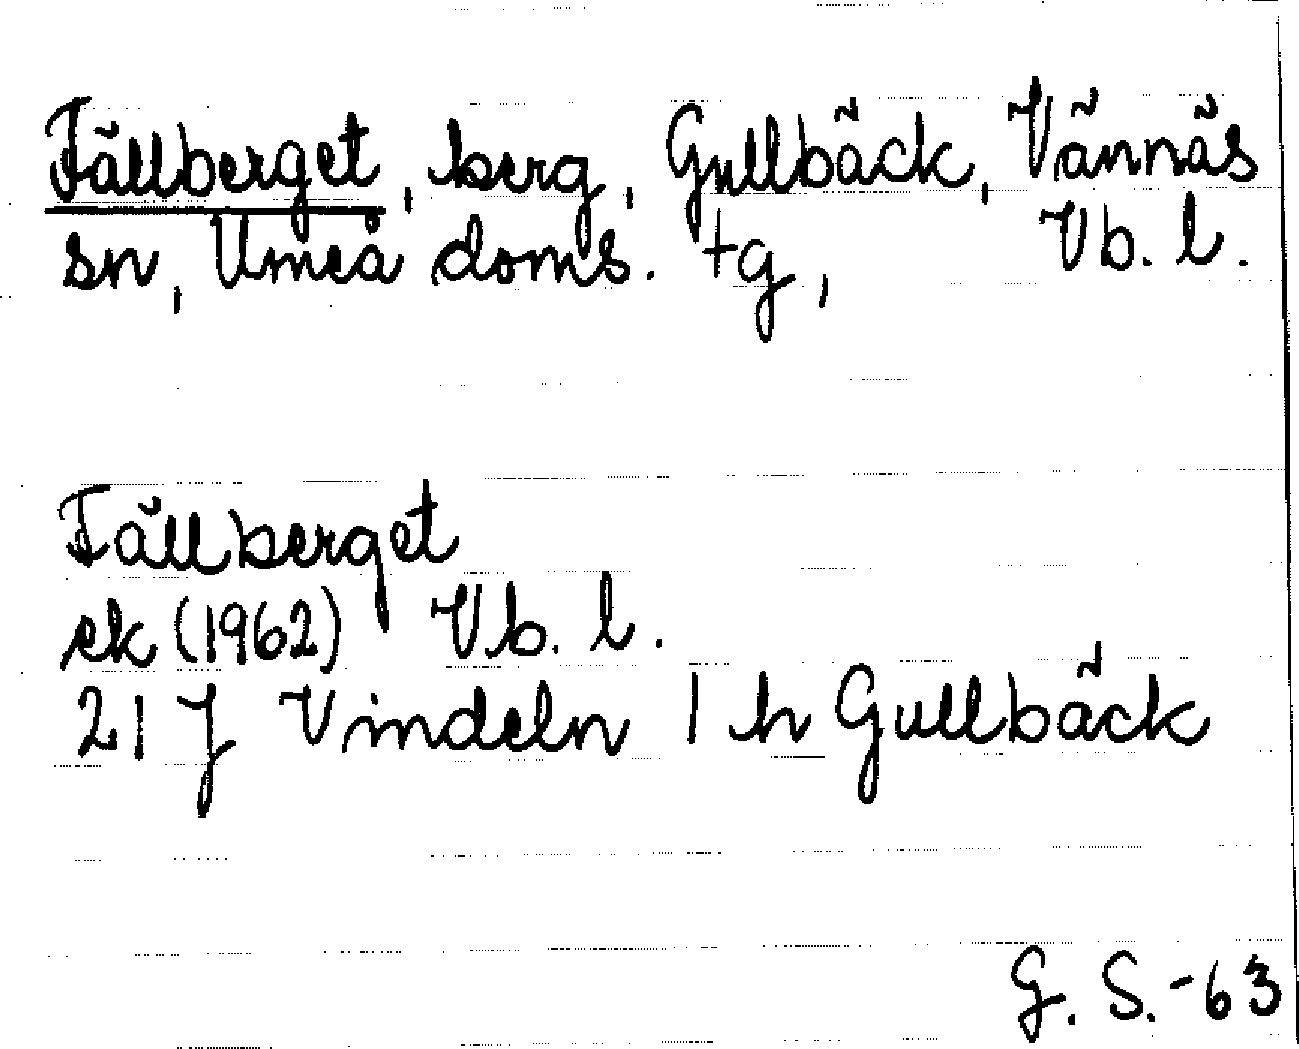 Fällberget, berg, Gullbäck, Vännäs
sn, Umeå doms. tg, Vb. l.
Fällberget
ek (1962) Vb. l.
21 J Vindeln 1 h Gullbäck
G. S. -63